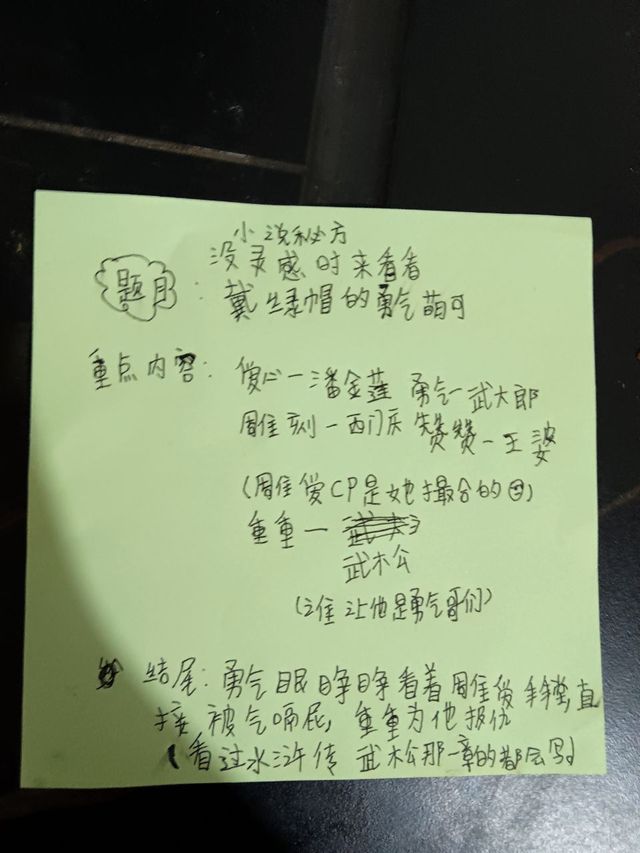 小说秘方
没灵感时来看看
题目：戴绿帽的勇气萌可
重点内容：傻心一潘金莲 勇气一武大郎
周佳刻一西门庆 赞赞一王婆
(周佳傻CP是她撮合的)
重重一
武松
(谁让他是勇气哥们)
结尾：勇气眼睁睁看着周佳傻手牵手，直
接被气嗝屁，重重为他报仇
(看过水浒传 武松那一章的都会写)